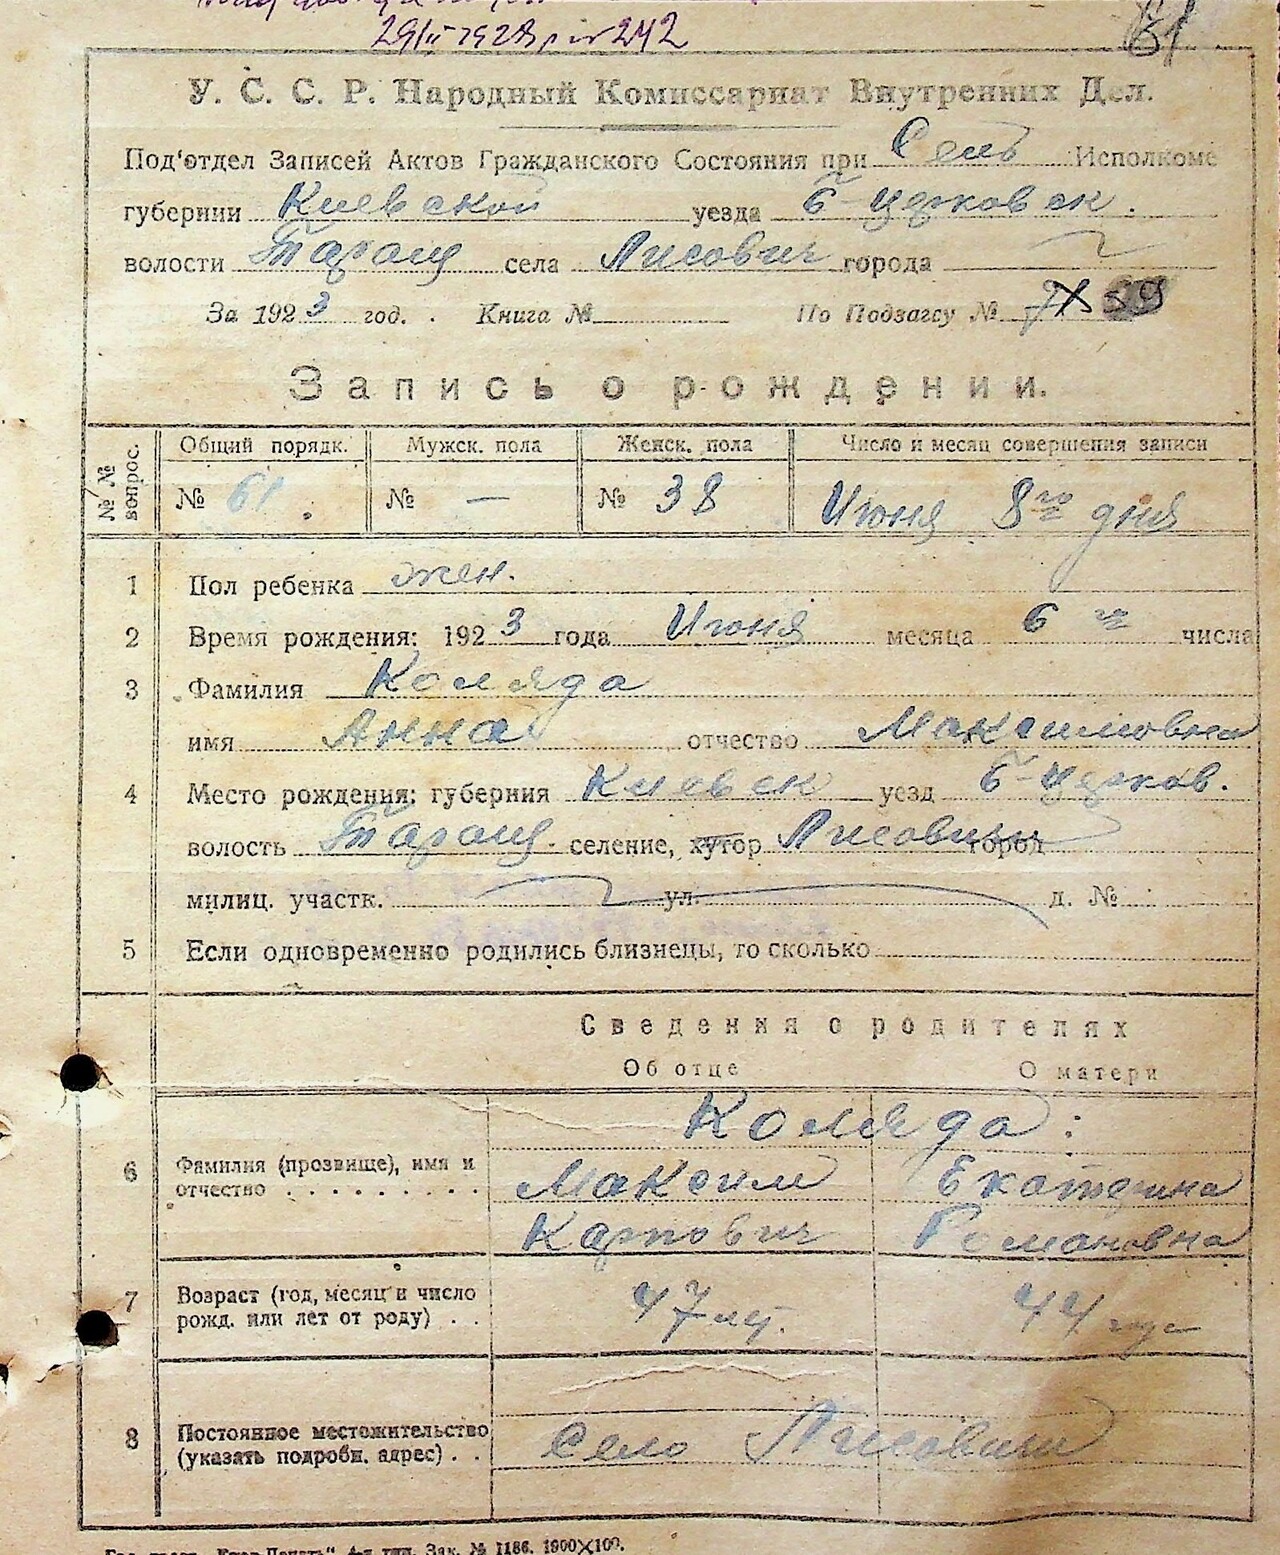 29/II 1928 242
61
У. С. С. Р. Народный Комиссариат Внутренних Дел.
Под‘отдел Записей Актов Гражданского Состояния при Сель Исполкоме
губернии Киевской уезда Б-Церковск.
волости Таращ села Лисович города
За 1923 год. Книга № По Подзагсу № 59
Запись о рождении.
№ № вопрос. Общий порядк. Мужск. пола Женск. пола Число и месяц совершения записи
№ 61. № — № 38 Июня 8го дня
1 Пол ребенка жен.
2 Время рождения: 1923 года Июня месяца 6 го числа
3 Фамилия Коляда
имя Анна отчество Максимовна
4 Место рождения: губерния Киевск уезд Б-Церков.
волость Таращ. селение, хутор Лисовичи город
милиц. участк. ул. д. №
5 Если одновременно родились близнецы, то сколько
Сведения о родителях
Об отце О матери
Коляда:
6 Фамилия (прозвище), имя и Максим Екатерина
отчество . . . . . . . . . Карпович Романовна
7 Возраст (год, месяц и число
рожд. или лет от роду) . . 47 лет. 44 года
8 Постоянное местожительство
(указать подробн. адрес) . . село Лисович
Зак. № 1186. 1900×100.